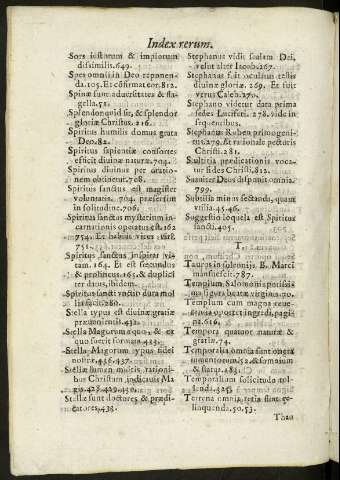 Index rerum.
Sors iustorum & impiorum
dissimilis. 649.
Spes omni in Deo reponen-
da. 105. Et cõfirmatur. 812.
Spinæ sunt aduersitates & fla-
gella. 51.
Splendor quid sit, & splendor
gloriæ Christus. 216.
Spiritus humilis domus grata
Deo. 82.
Spiritus sapientiæ consortes
efficit diuinæ naturæ. 704.
Spiritus diuinus per oratio-
nem obtinetur. 708.
Spiritus sanctus est magister
voluntatis. 704. præsertim
in solitudine. 706.
Spiritus sanctus mysterium in-
carnationis operatus est. 162
754. Et habitus vices
751.
Spiritus sanctus inspirat vi-
tam. 164. Et est fecundus
& prolificus. 165. & duplici-
ter datus, ibidem.
Spiritus sancti vnctio dura mol-
lia facit. 280.
Stella typus est diuinæ gratiæ
præuenientis. 432.
Stella Magorum quo, & ex
quo fuerit formata. 433.
Stella Magorum typus fidei
nostræ. 436. 437.
Stellæ lumen multis rationi-
bus Christum indicauit Ma
gis. 429. 439. 430.
Stellæ sunt doctores & prædi-
catores. 438.
Stephanus vidit scalam Dei,
velut alter Iacob. 267.
Stephanus fuit oculatus testis
diuinæ gloriæ. 269. Et fuit
verus Caleb. 270.
Stephano videtur data prima
sedes Luciferi. 278. vide in
sequentibus.
Stephanus Ruben primogeni-
tus. 279. Et rationale pectoris
Christi. 281.
Stultitia prædicationis voca-
tur fides Christi. 812.
Suauiter Deus disponit omnia.
799.
Subtilia minus sectanda, quam
vtilia. 45. 46.
Suggestio loquela est Spiritus
sancti. 405.
T.
Taurus in
mansuescit. 787.
Templum Salomonis
ma figura beatæ virginis. 70.
Templum cum magna reue-
rentia oportet ingredi, pagi-
na. 616.
Tempora quatuor naturæ &
gratiæ. 74.
Temporalia omnia sunt onera
ingentorum 52. & somnium
& flatus. 183.
Temporalium solicitudo tol-
lenda. 425.
Terrena omnia retia sunt re-
linquenda. 50. 53.